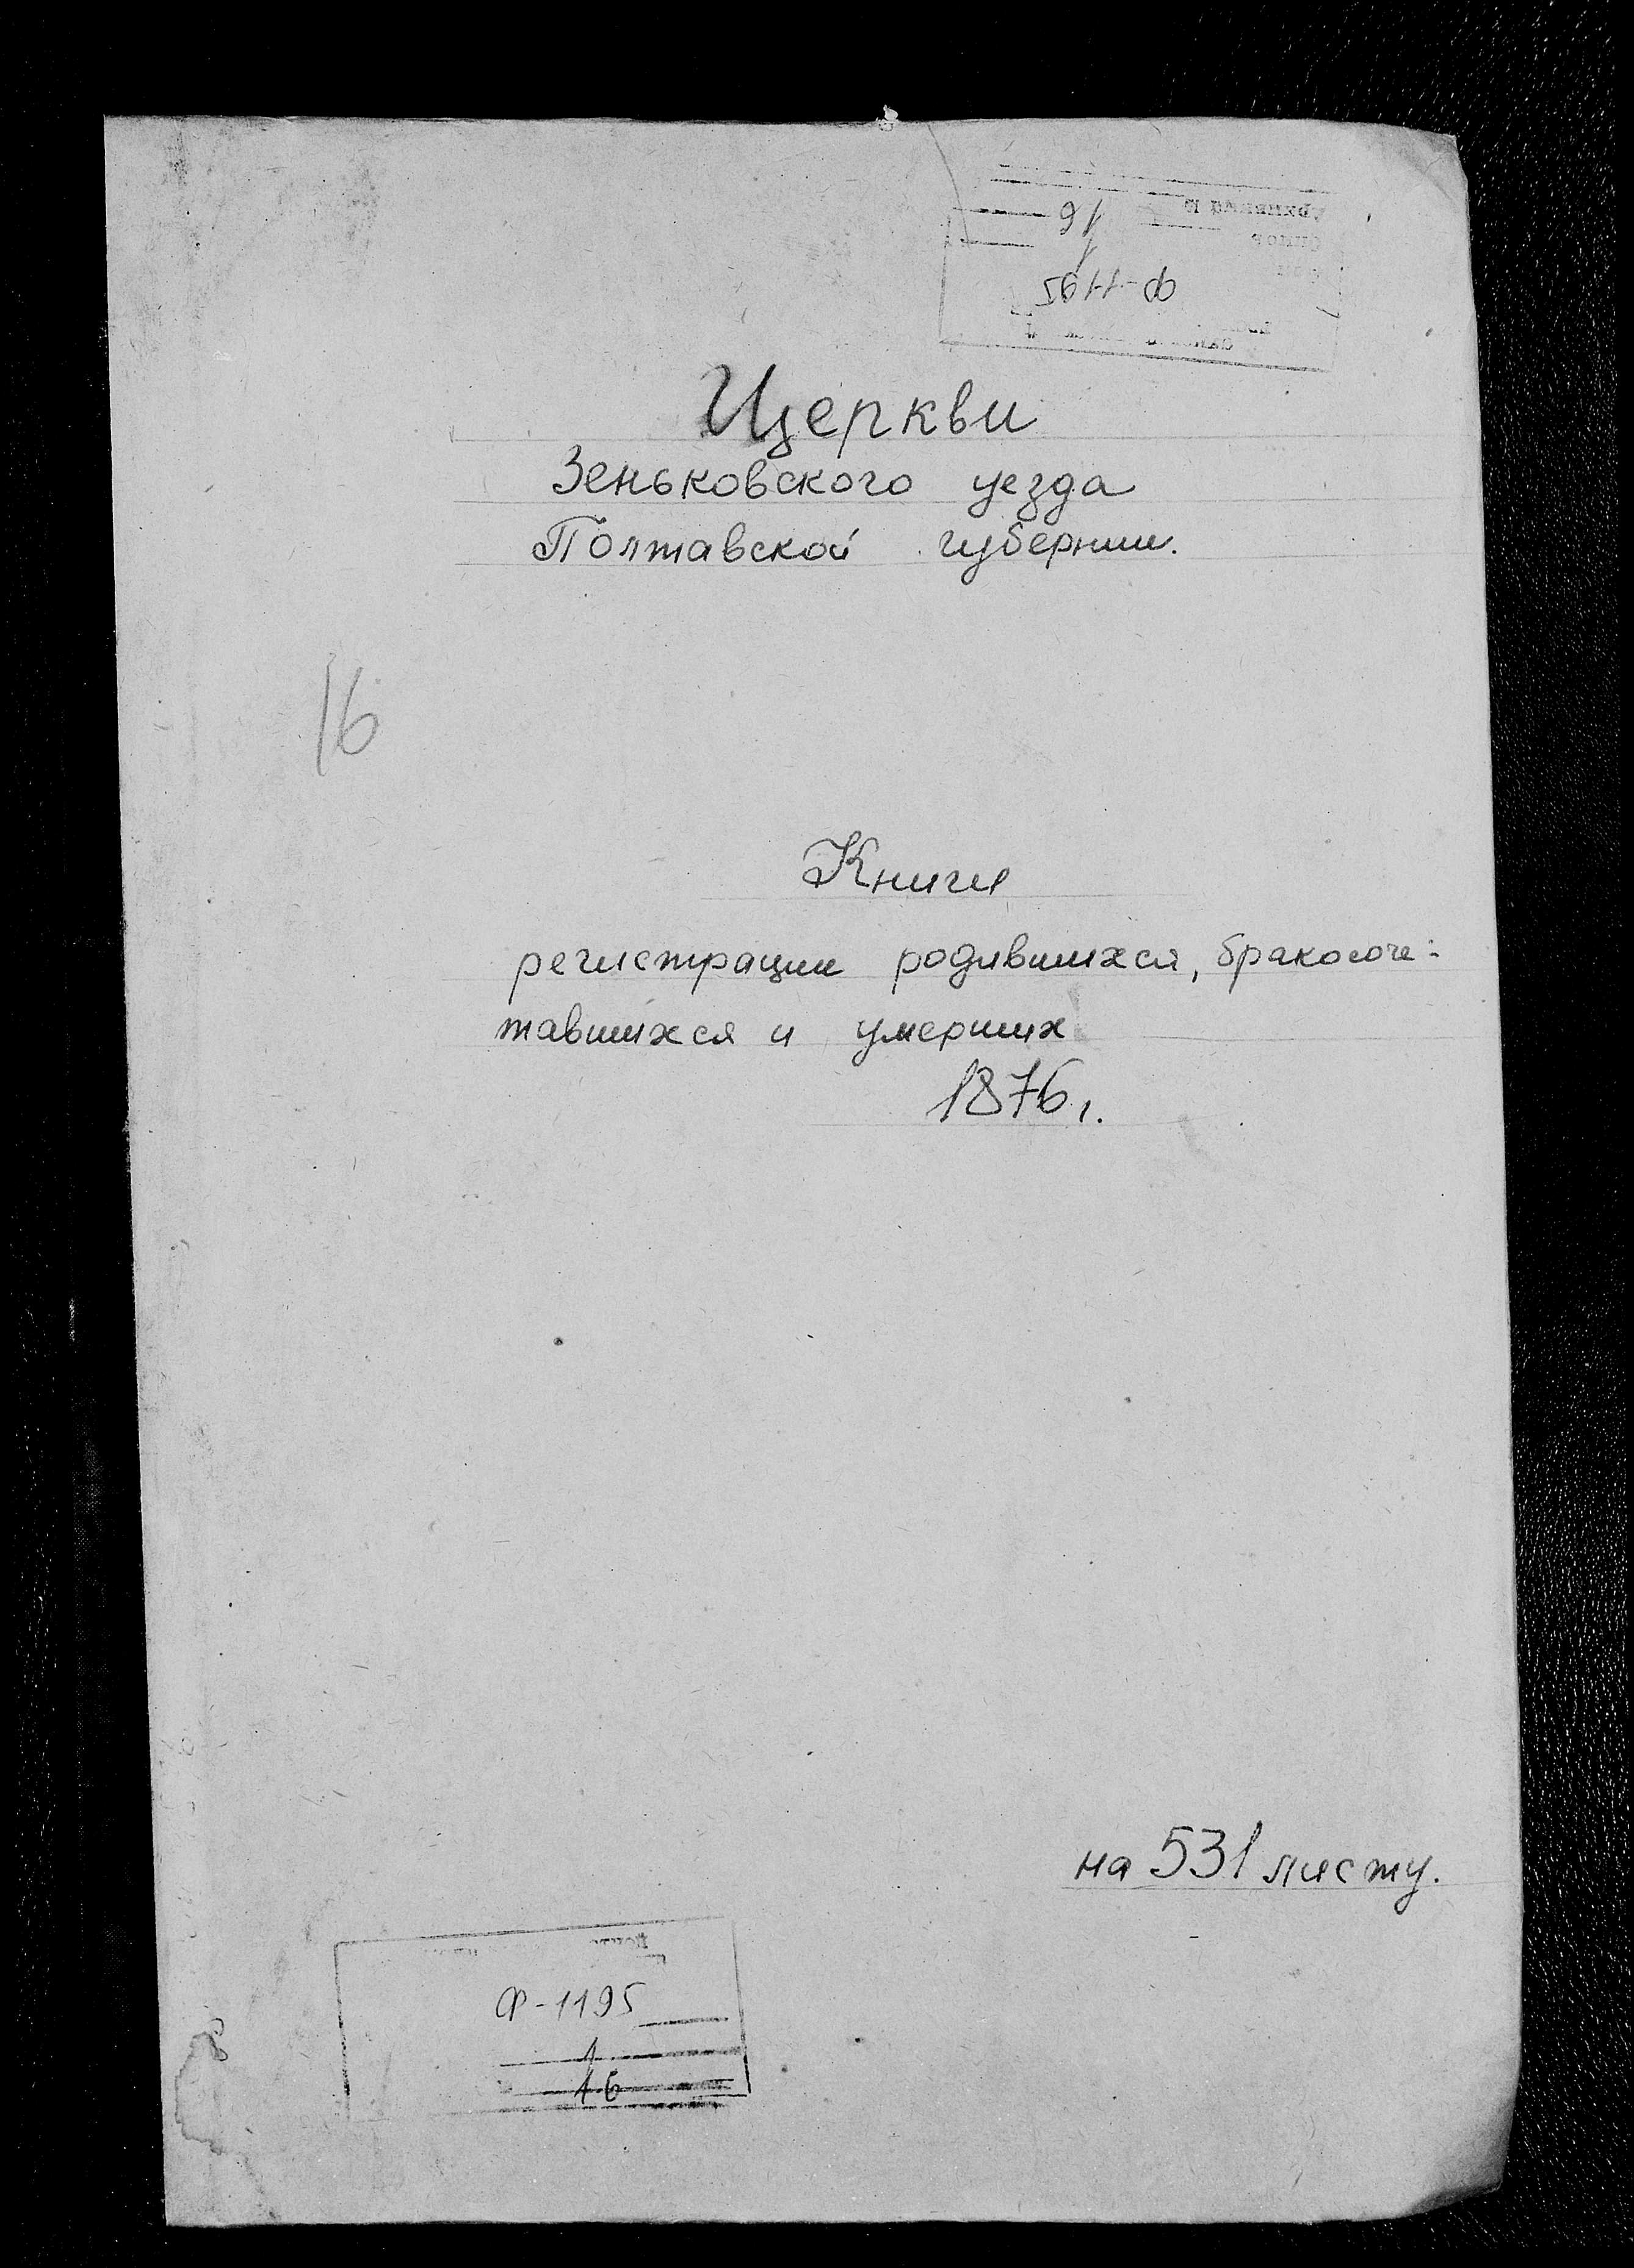 Ф-1195
1
16
Церкви
Зеньковского уезда
Полтавской губернии.
16
Книги
регистрации родившихся, бракосоче-
тавшихся и умерших
1876 г.
на 531 листу.
Ф-1195
1
16